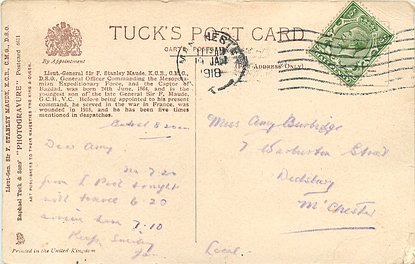 TUCK'S POST CARD
CARTE POSTALE
By Appointment
(Address Only)
MANCHESTER
11 AM
19 JAN
1918
Lieut.-Gen. Sir F. STANLEY MAUDE, K.C.B., C.M.G., D.S.O.
Raphael Tuck & Sons' "PHOTOGRAVURE" Postcard
ART PUBLISHERS TO THEIR MAJESTIES THE KING & QUEEN.
Lieut.-General Sir F. Stanley Maude, K.C.B., C.M.G.,
D.S.O., General Officer Commanding the Mesopota-
mian Expeditionary Force, and the Captor of
Bagdad, was born 24th June, 1864, and is the
youngest son of the late General Sir F. Maude,
G.C.B., V.C. Before being appointed to his present
command, he served in the war in France, was
wounded in 1915, and he has been five times
mentioned in despatches.
Dear Amy
No 7.20
from L Pool tonight
will travel 6-20
arrive here 7.10
Miss Amy Burbidge
7 Warburton Street
Didsbury
M'Chester
Local
Printed in the United Kingdom